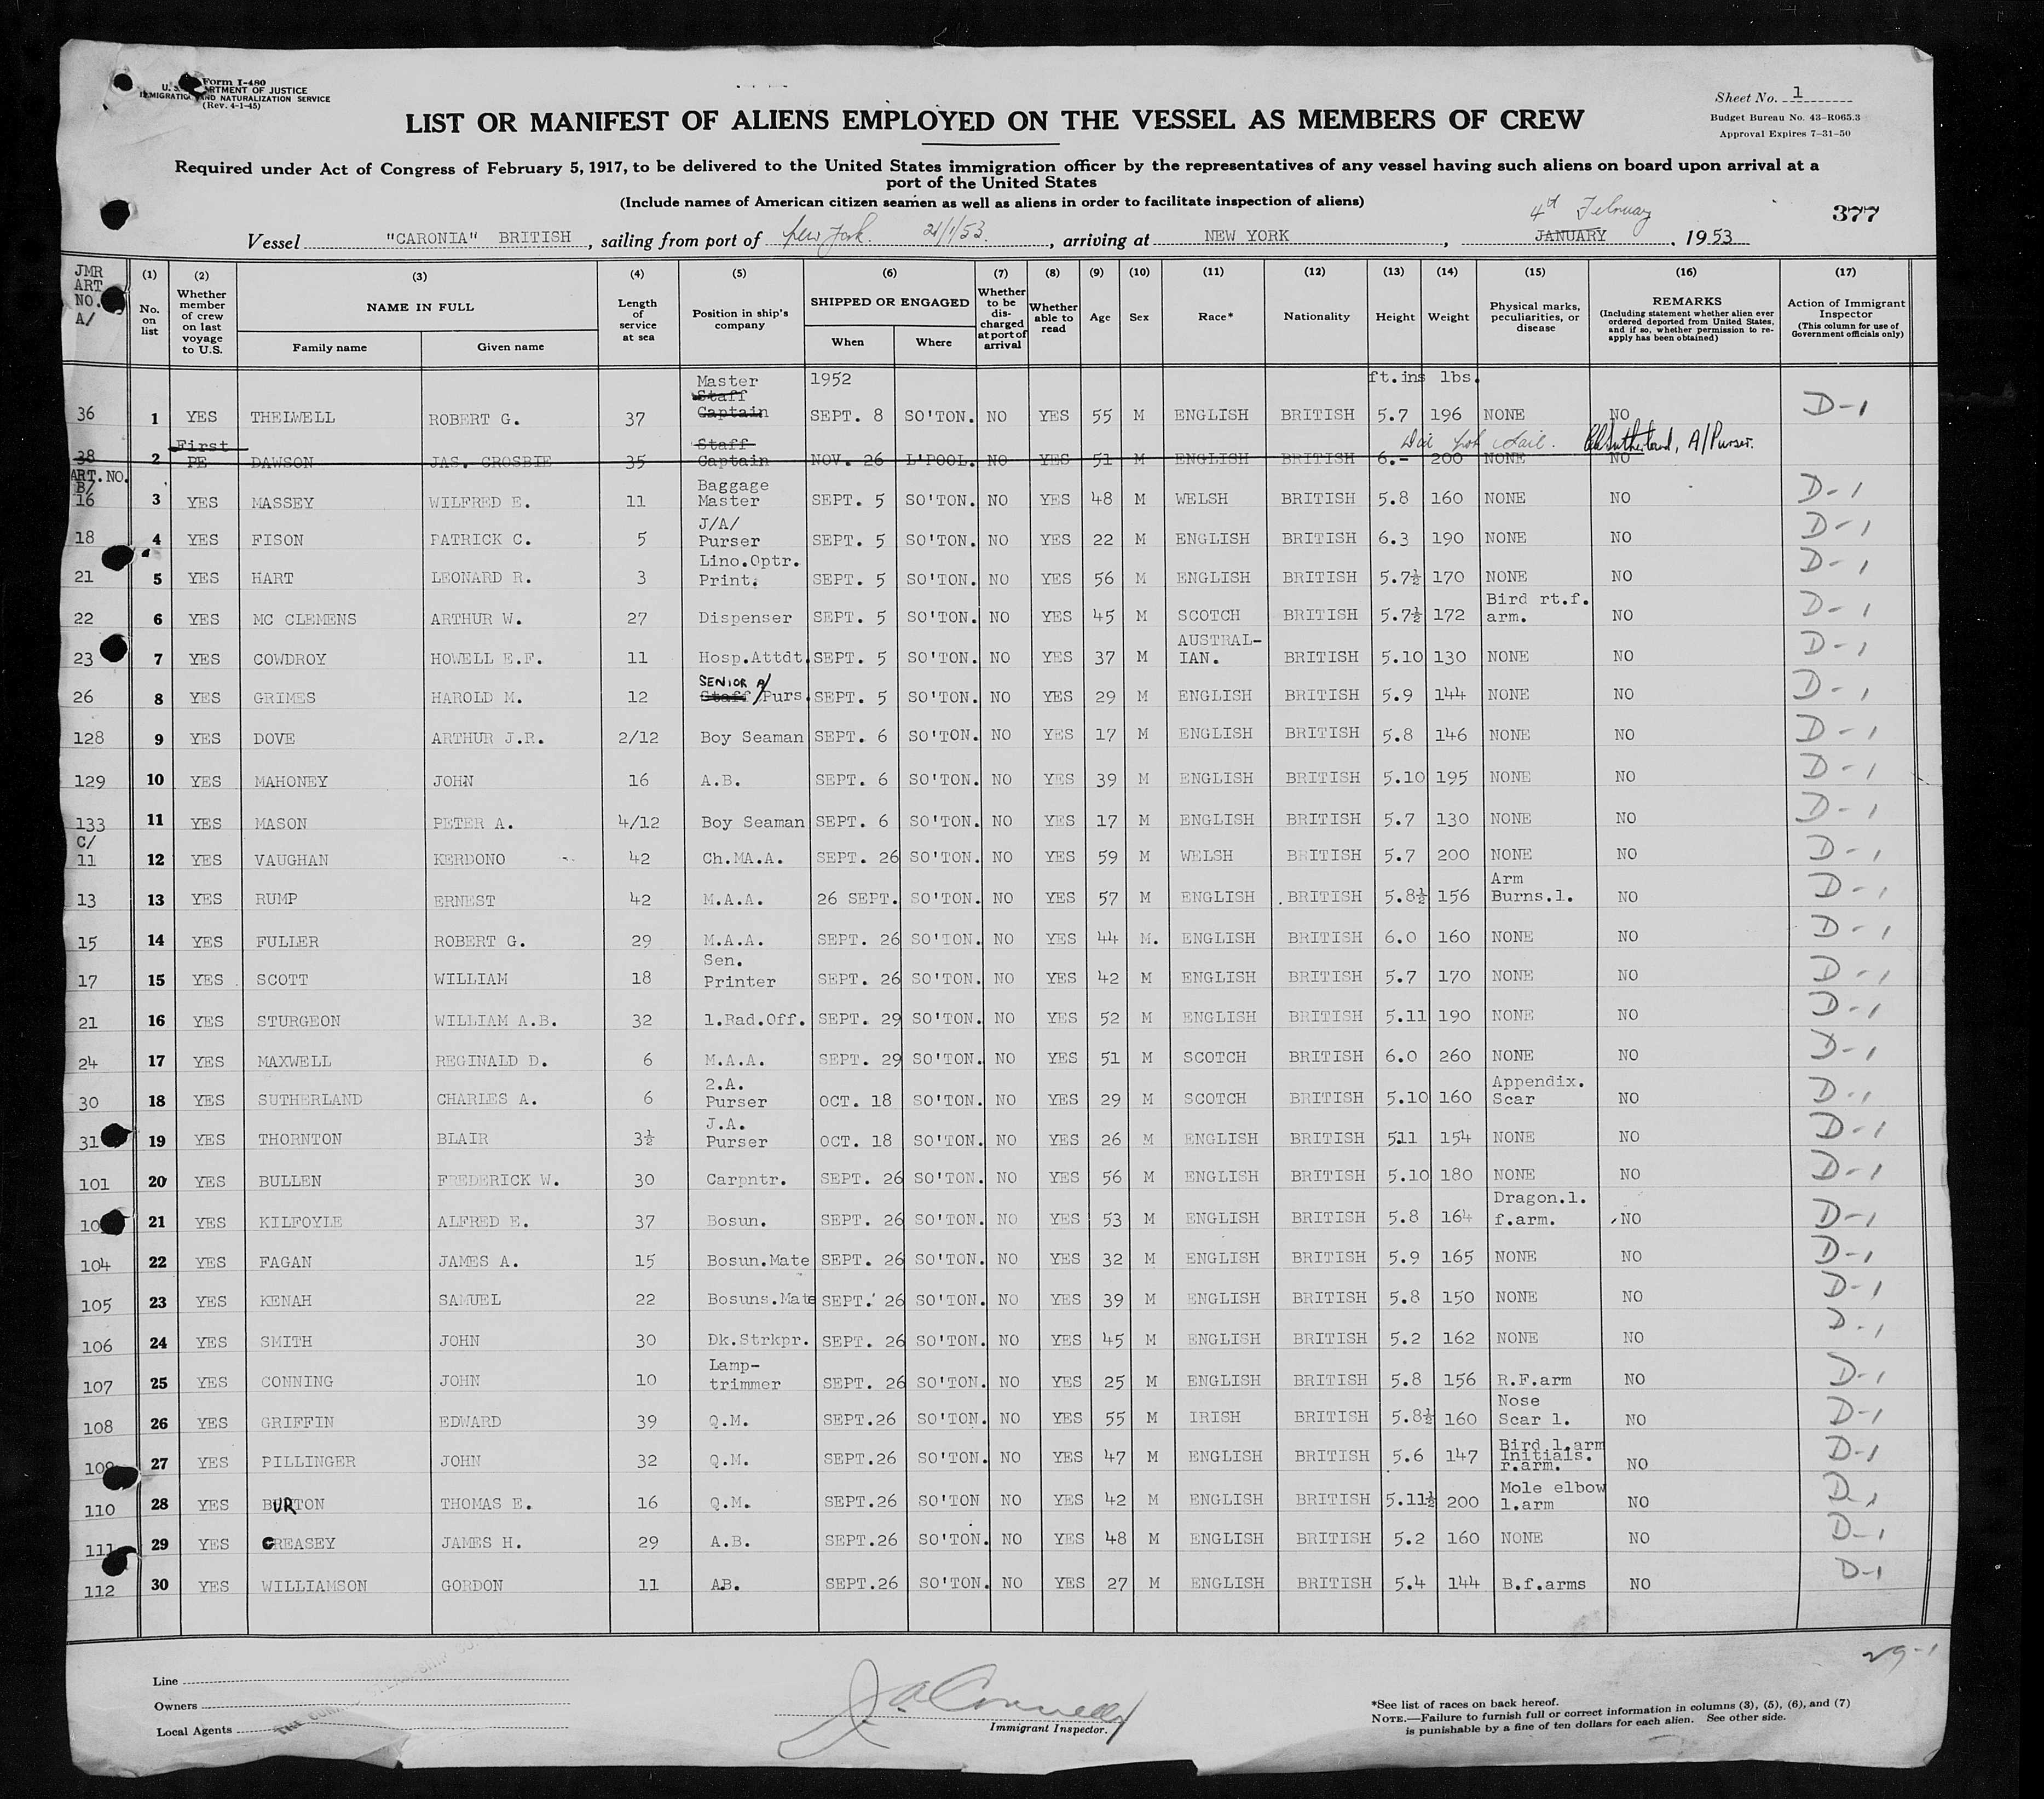 Form I-480
U. S. DEPARTMENT OF JUSTICE
IMMIGRATION AND NATURALIZATION SERVICE
(Rev. 4-1-45)
Sheet No. 1
Budget Bureau No. 43-R065.3
Approval Expires 7-31-50
LIST OR MANIFEST OF ALIENS EMPLOYED ON THE VESSEL AS MEMBERS OF CREW
Required under Act of Congress of February 5, 1917, to be delivered to the United States immigration officer by the representatives of any vessel having such aliens on board upon arrival at a
port of the United States
(Include names of American citizen seamen as well as aliens in order to facilitate inspection of aliens)
377
4th February
Vessel "CARONIA" BRITISH, sailing from port of New York. 21/1/53., arriving at NEW YORK, JANUARY, 1953
JMR ART NO. A/
(1) No. on list
(2) Whether member of crew on last voyage to U.S.
(3) NAME IN FULL Family name Given name
(4) Length of service at sea
(5) Position in ship's company
(6) SHIPPED OR ENGAGED When Where
(7) Whether to be discharged at port of arrival
(8) Whether able to read
(9) Age
(10) Sex
(11) Race*
(12) Nationality
(13) Height
(14) Weight
(15) Physical marks, peculiarities, or disease
(16) REMARKS (Including statement whether alien ever ordered deported from United States, and if so, whether permission to re-apply has been obtained)
(17) Action of Immigrant Inspector (This column for use of Government officials only)
1952 ft.ins lbs.
36 1 YES THELWELL ROBERT G. 37 Master Staff Captain SEPT. 8 SO'TON. NO YES 55 M ENGLISH BRITISH 5.7 196 NONE NO D-1
Did not sail. CASutherland, A/Purser.
38 2 First PE DAWSON JAS. CROSBIE 35 Staff Captain NOV. 26 L'POOL. NO YES 51 M ENGLISH BRITISH 6.- 200 NONE NO
ART. NO. B/
16 3 YES MASSEY WILFRED E. 11 Baggage Master SEPT. 5 SO'TON. NO YES 48 M WELSH BRITISH 5.8 160 NONE NO D-1
18 4 YES FISON PATRICK C. 5 J/A/ Purser SEPT. 5 SO'TON. NO YES 22 M ENGLISH BRITISH 6.3 190 NONE NO D-1
21 5 YES HART LEONARD R. 3 Lino.Optr. Print. SEPT. 5 SO'TON. NO YES 56 M ENGLISH BRITISH 5.7½ 170 NONE NO D-1
22 6 YES MC CLEMENS ARTHUR W. 27 Dispenser SEPT. 5 SO'TON. NO YES 45 M SCOTCH BRITISH 5.7½ 172 Bird rt.f. arm. NO D-1
23 7 YES COWDROY HOWELL E.F. 11 Hosp.Attdt. SEPT. 5 SO'TON. NO YES 37 M AUSTRAL- IAN. BRITISH 5.10 130 NONE NO D-1
26 8 YES GRIMES HAROLD M. 12 SENIOR A/ Staff Purs. SEPT. 5 SO'TON. NO YES 29 M ENGLISH BRITISH 5.9 144 NONE NO D-1
128 9 YES DOVE ARTHUR J.R. 2/12 Boy Seaman SEPT. 6 SO'TON. NO YES 17 M ENGLISH BRITISH 5.8 146 NONE NO D-1
129 10 YES MAHONEY JOHN 16 A.B. SEPT. 6 SO'TON. NO YES 39 M ENGLISH BRITISH 5.10 195 NONE NO D-1
133 11 YES MASON PETER A. 4/12 Boy Seaman SEPT. 6 SO'TON. NO YES 17 M ENGLISH BRITISH 5.7 130 NONE NO D-1
C/
11 12 YES VAUGHAN KERDONO 42 Ch.MA.A. SEPT. 26 SO'TON. NO YES 59 M WELSH BRITISH 5.7 200 NONE NO D-1
13 13 YES RUMP ERNEST 42 M.A.A. 26 SEPT. SO'TON. NO YES 57 M ENGLISH BRITISH 5.8½ 156 Arm Burns.l. NO D-1
15 14 YES FULLER ROBERT G. 29 M.A.A. SEPT. 26 SO'TON. NO YES 44 M. ENGLISH BRITISH 6.0 160 NONE NO D-1
17 15 YES SCOTT WILLIAM 18 Sen. Printer SEPT. 26 SO'TON. NO YES 42 M ENGLISH BRITISH 5.7 170 NONE NO D-1
21 16 YES STURGEON WILLIAM A.B. 32 1.Rad.Off. SEPT. 29 SO'TON. NO YES 52 M ENGLISH BRITISH 5.11 190 NONE NO D-1
24 17 YES MAXWELL REGINALD D. 6 M.A.A. SEPT. 29 SO'TON. NO YES 51 M SCOTCH BRITISH 6.0 260 NONE NO D-1
30 18 YES SUTHERLAND CHARLES A. 6 2.A. Purser OCT. 18 SO'TON. NO YES 29 M SCOTCH BRITISH 5.10 160 Appendix. Scar NO D-1
31 19 YES THORNTON BLAIR 3½ J.A. Purser OCT. 18 SO'TON. NO YES 26 M ENGLISH BRITISH 511 154 NONE NO D-1
101 20 YES BULLEN FREDERICK W. 30 Carpntr. SEPT. 26 SO'TON. NO YES 56 M ENGLISH BRITISH 5.10 180 NONE NO D-1
10 21 YES KILFOYLE ALFRED E. 37 Bosun. SEPT. 26 SO'TON. NO YES 53 M ENGLISH BRITISH 5.8 164 Dragon.l. f.arm. NO D-1
104 22 YES FAGAN JAMES A. 15 Bosun.Mate SEPT. 26 SO'TON. NO YES 32 M ENGLISH BRITISH 5.9 165 NONE NO D-1
105 23 YES KENAH SAMUEL 22 Bosuns.Mate SEPT. 26 SO'TON. NO YES 39 M ENGLISH BRITISH 5.8 150 NONE NO D-1
106 24 YES SMITH JOHN 30 Dk.Strkpr. SEPT. 26 SO'TON. NO YES 45 M ENGLISH BRITISH 5.2 162 NONE NO D-1
107 25 YES CONNING JOHN 10 Lamp- trimmer SEPT. 26 SO'TON. NO YES 25 M ENGLISH BRITISH 5.8 156 R.F.arm NO D-1
108 26 YES GRIFFIN EDWARD 39 Q.M. SEPT.26 SO'TON. NO YES 55 M IRISH BRITISH 5.8½ 160 Nose Scar l. NO D-1
109 27 YES PILLINGER JOHN 32 Q.M. SEPT.26 SO'TON. NO YES 47 M ENGLISH BRITISH 5.6 147 Bird l.arm Initials. r.arm. NO D-1
110 28 YES BURTON THOMAS E. 16 Q.M. SEPT.26 SO'TON NO YES 42 M ENGLISH BRITISH 5.11½ 200 Mole elbow l.arm NO D-1
111 29 YES CREASEY JAMES H. 29 A.B. SEPT.26 SO'TON. NO YES 48 M ENGLISH BRITISH 5.2 160 NONE NO D-1
112 30 YES WILLIAMSON GORDON 11 AB. SEPT.26 SO'TON. NO YES 27 M ENGLISH BRITISH 5.4 144 B.f.arms NO D-1
29-1
Line
Owners
Local Agents
J. A. Connelly
Immigrant Inspector.
*See list of races on back hereof.
NOTE.—Failure to furnish full or correct information in columns (3), (5), (6), and (7)
is punishable by a fine of ten dollars for each alien. See other side.